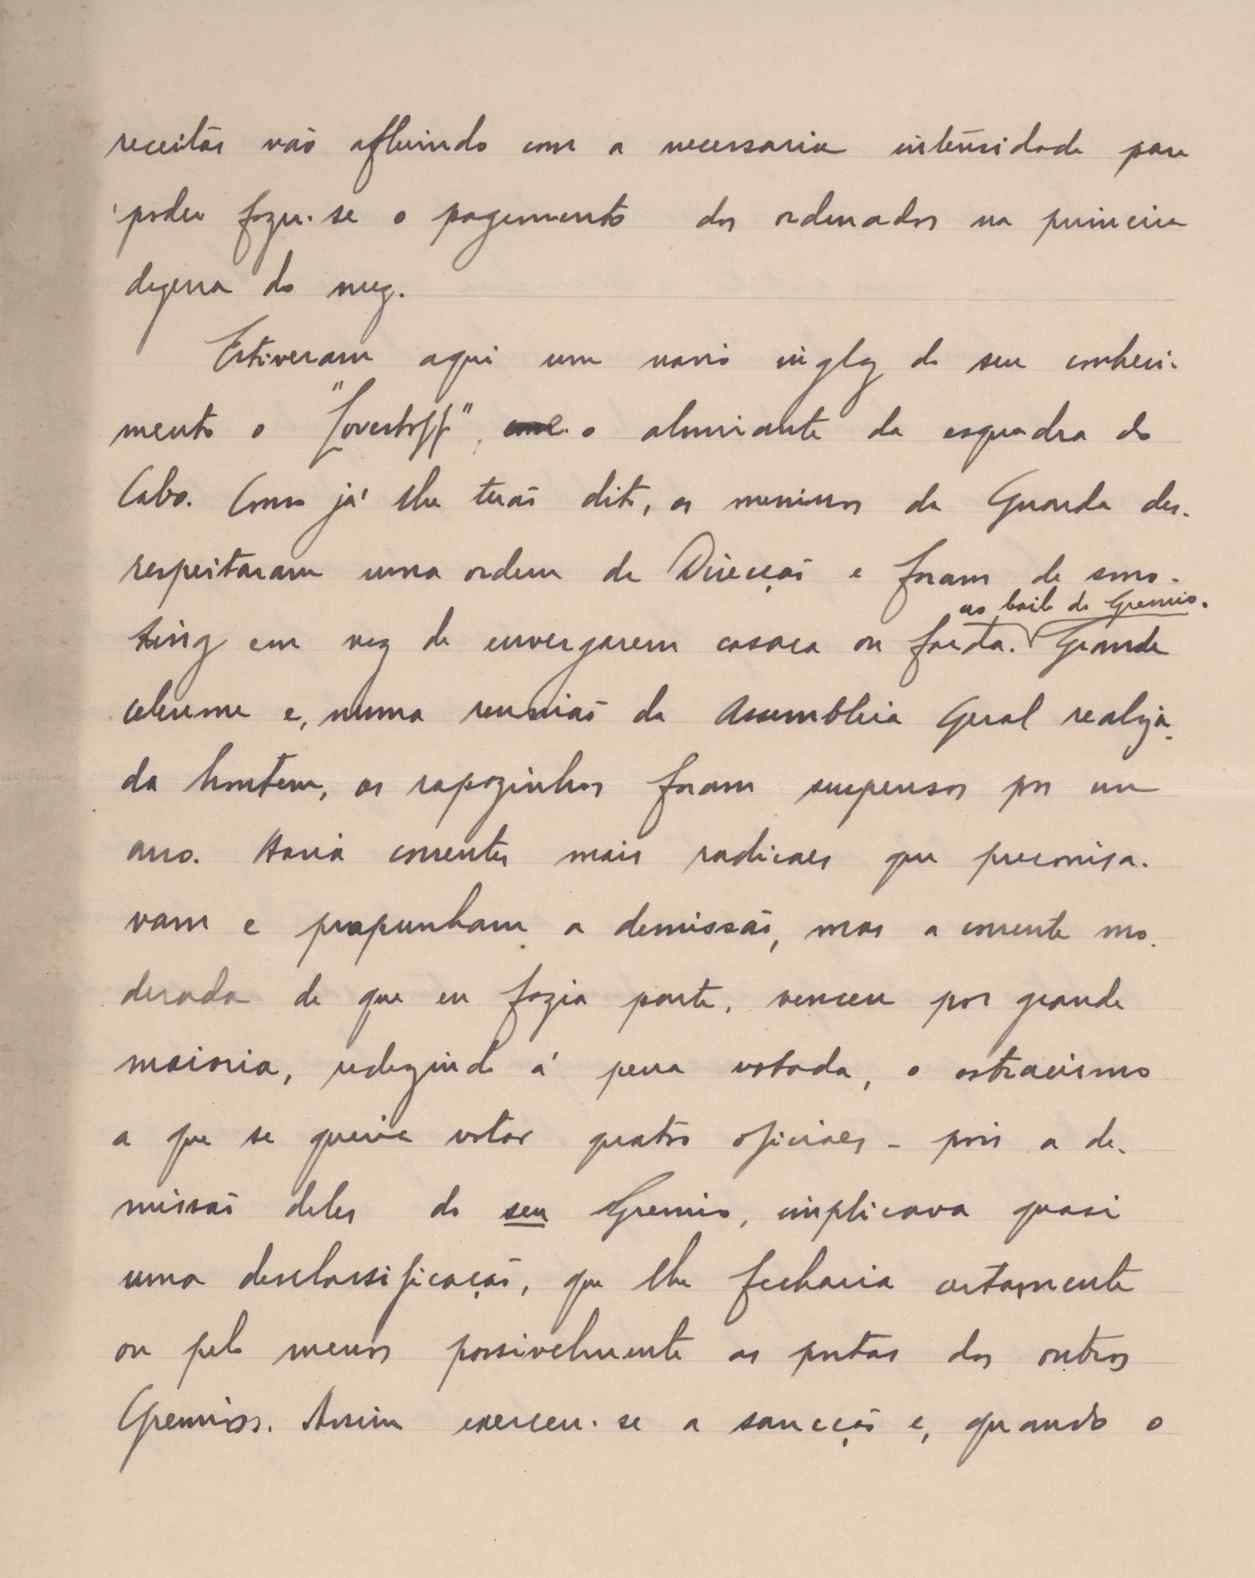 receitas vão afluindo com a necessaria intensidade para
poder fazer-se o pagamento dos ordenados na primeira
dezena do mez.
Estiveram aqui um navio inglez do seu conheci-
mento o "Lowestoft", o almirante da esquadra do
Cabo. Como já lhe terão dito, os meninos da Guarda des-
respeitaram uma ordem da Direcção e foram de smo-
ao baile do Gremio.
king em vez de envergarem casaca ou farda. Grande
celeume e, numa reunião da Assembleia Geral realiza-
da hontem, os rapazinhos foram suspensos por um
ano. Havia correntes mais radicaes que preconisa-
vam e propunham a demissão, mas a corrente mo-
derada de que eu fazia parte, venceu por grande
maioria, reduzindo á pena votada, o ostracismo
a que se queria votar quatro oficiaes - pois a de-
missão deles do seu Gremio, implicava quasi
uma desclassificação, que lhe fecharia certamente
ou pelo menos possivelmente as portas dos outros
Gremios. Assim exerceu-se a sancção e, quando o